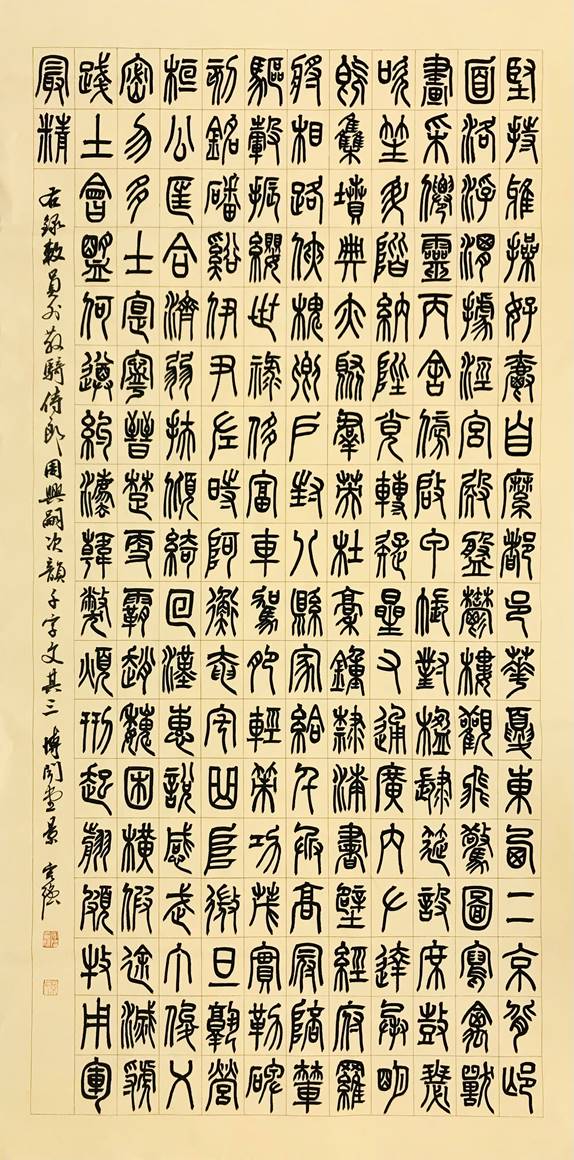 堅持雅操好爵自縻都邑華夏東西二京背邙
面洛浮渭據涇宮殿盤鬱樓觀飛驚圖寫禽獸
畫采僊靈丙舍傍啟甲帳對楹肆筵設席鼓瑟
吹笙升階納陛弁轉疑星右通廣內左達承明
既集墳典亦聚群英杜稾鍾隸漆書壁經府羅
將相路俠槐卿戶封八縣家給千兵高冠陪輦
驅轂振纓世祿侈富車駕肥輕策功茂實勒碑
刻銘磻谿伊尹佐時阿衡奄宅曲阜微旦孰營
桓公匡合濟弱扶傾綺回漢惠說感武丁俊乂
密勿多士寔寧晉楚更霸趙魏困橫假途滅虢
踐土會盟何遵約法韓弊煩刑起翦頗牧用軍
最精
右錄敕員外散騎侍郎周興嗣次韻千字文其三